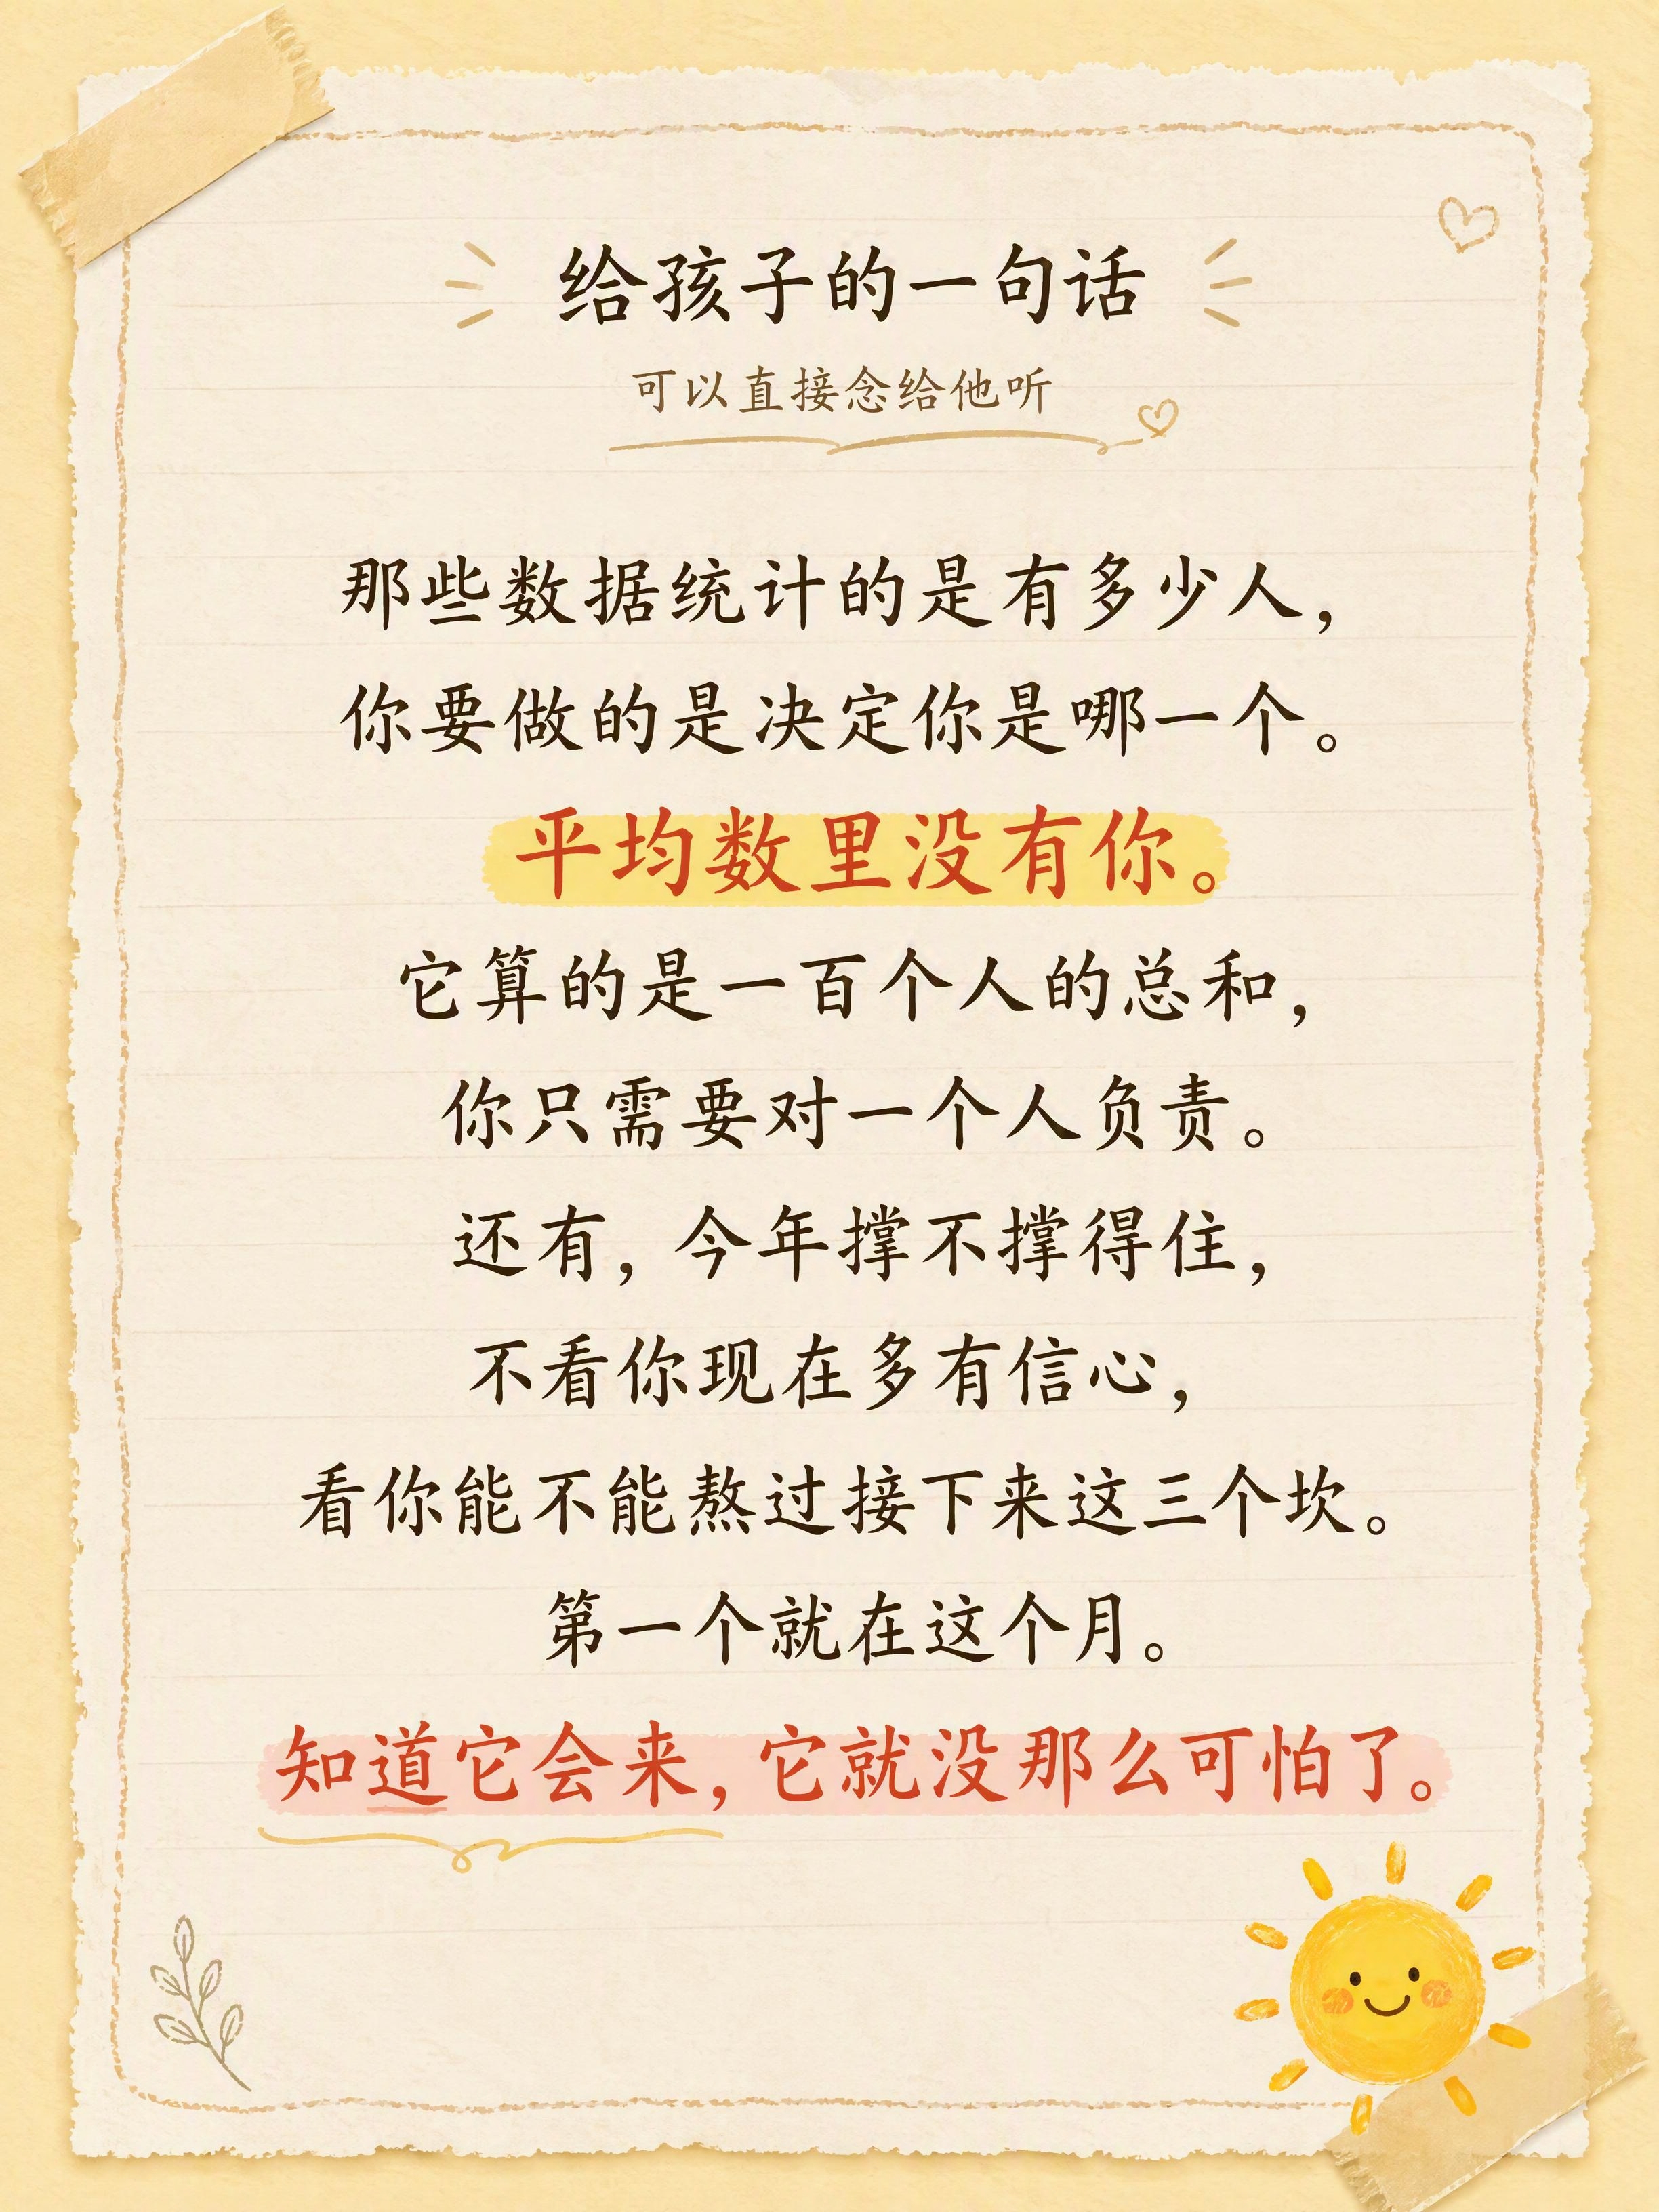 给孩子的一句话
可以直接念给他听
那些数据统计的是有多少人，
你要做的是决定你是哪一个。
平均数里没有你。
它算的是一百个人的总和，
你只需要对一个人负责。
还有，今年撑不撑得住，
不看你现在多有信心，
看你能不能熬过接下来这三个坎。
第一个就在这个月。
知道它会来，它就没那么可怕了。